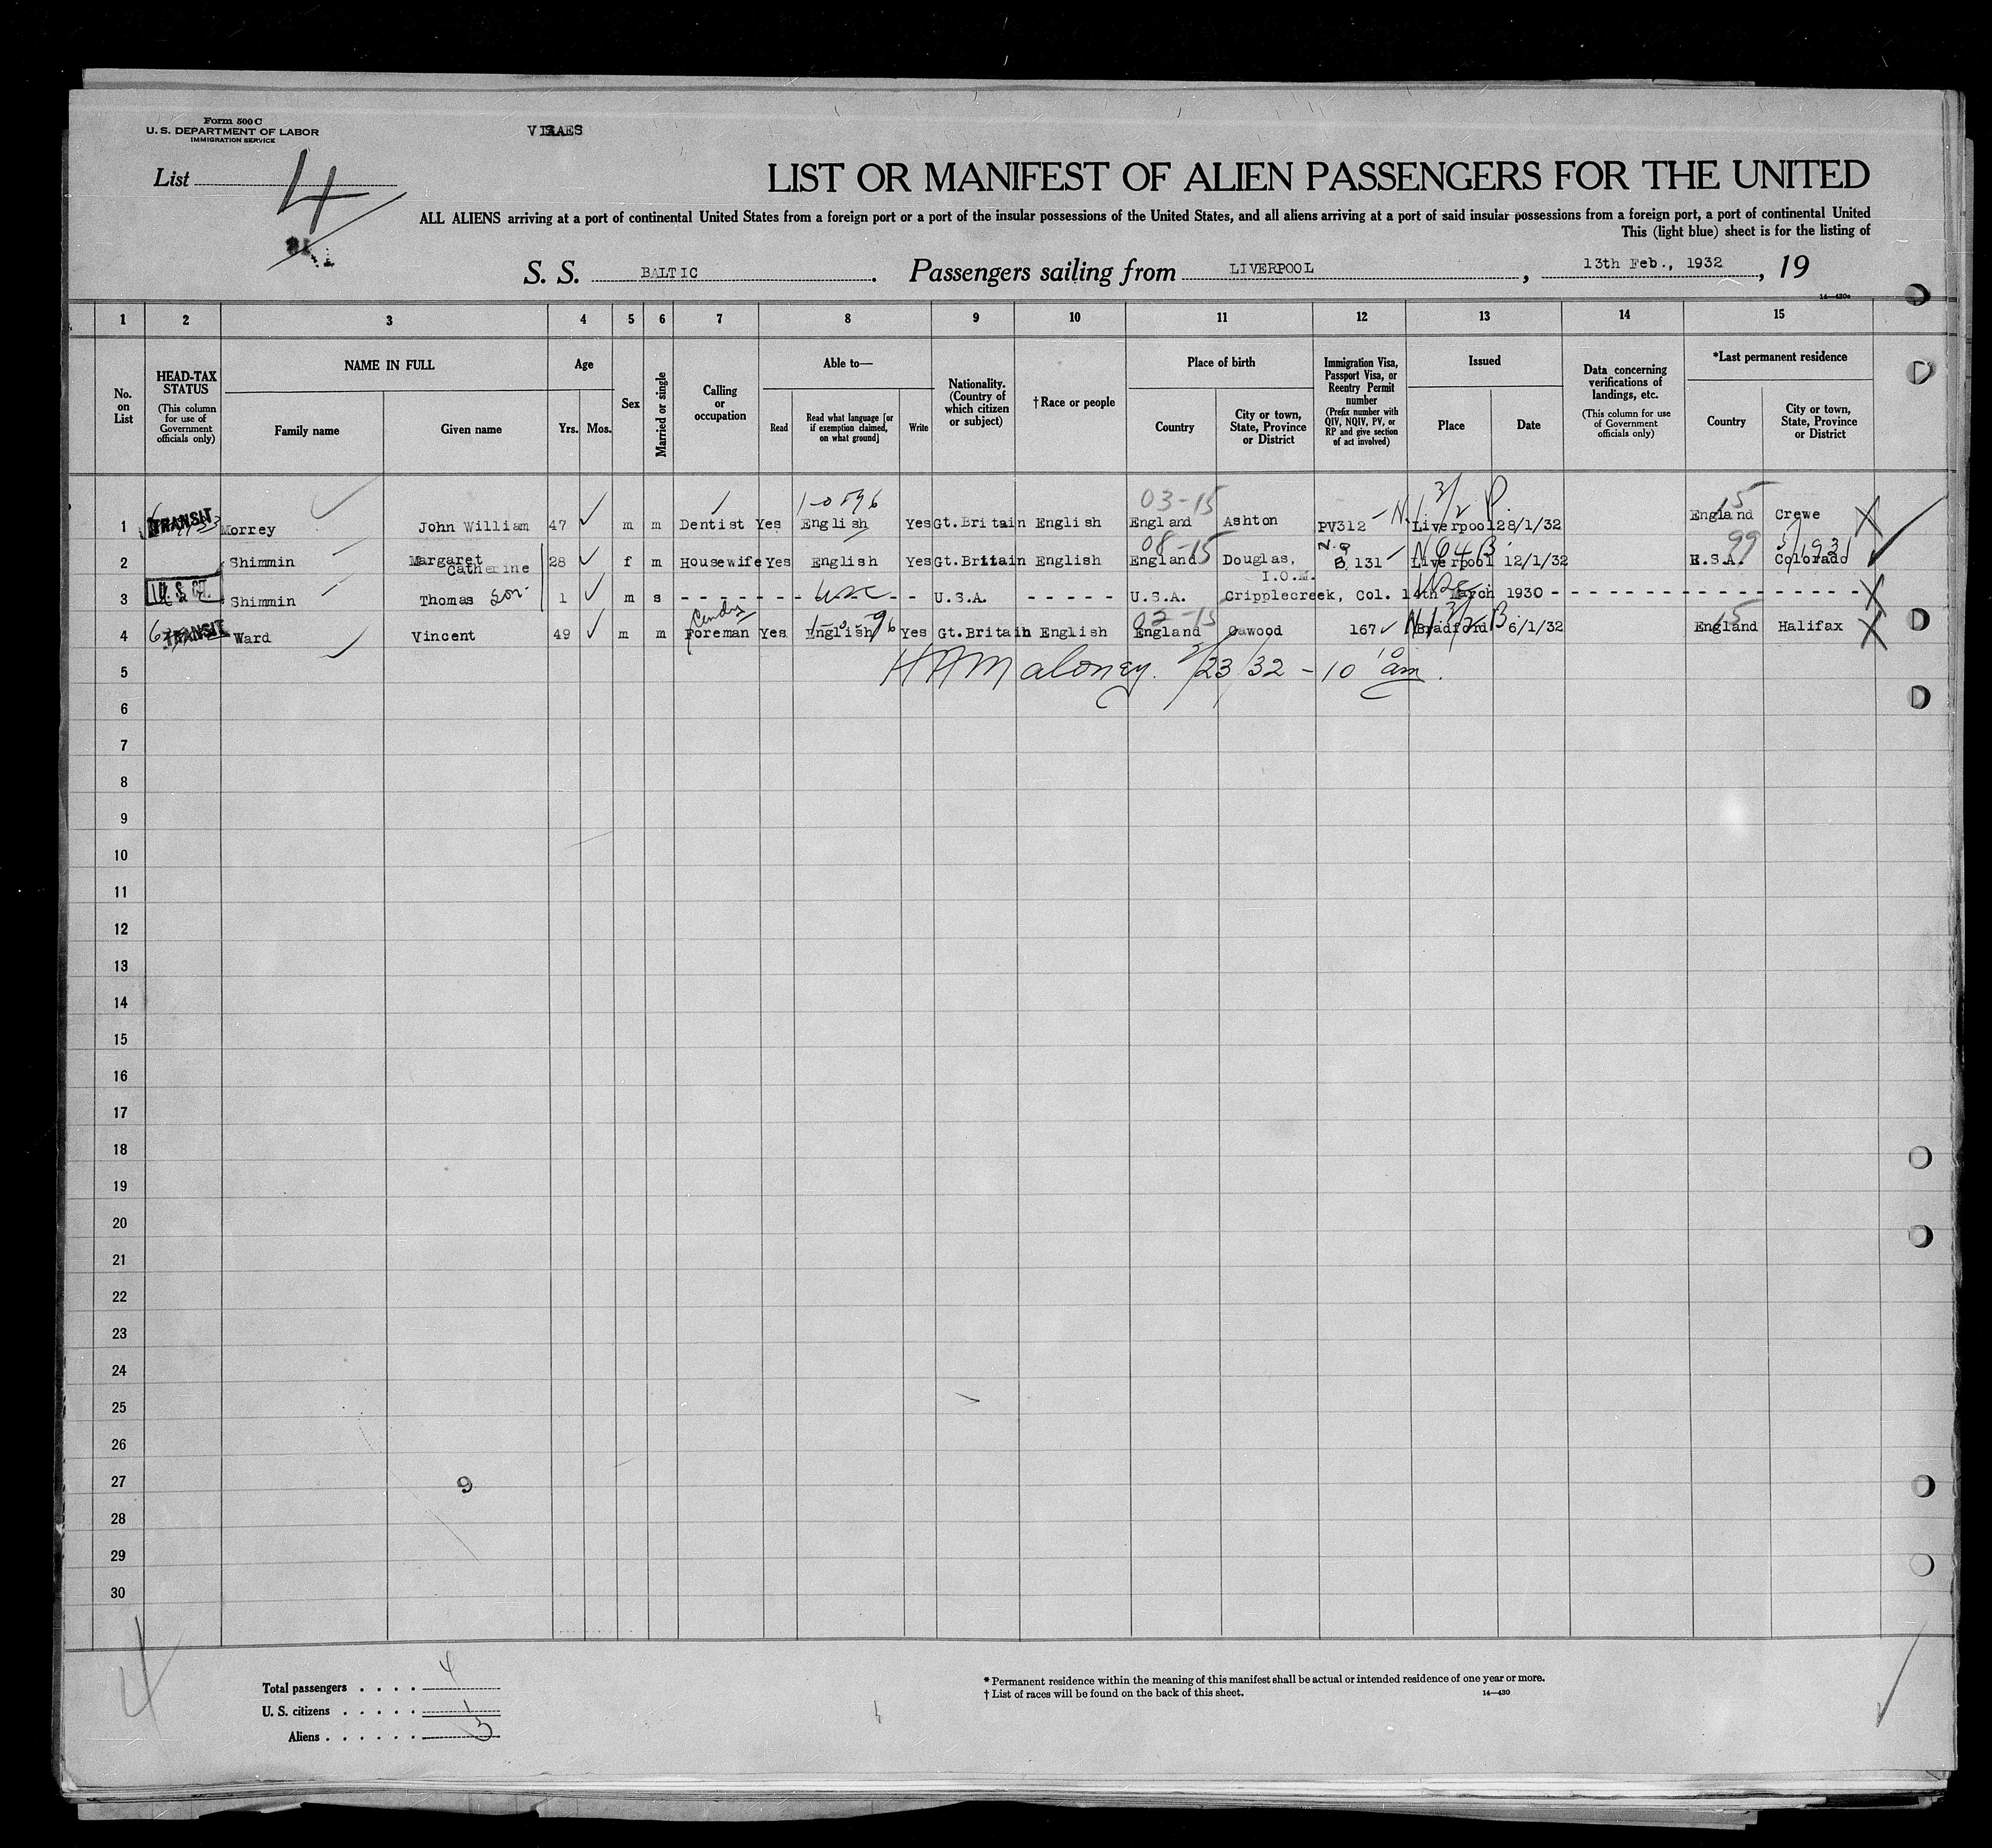 Form 500 C
U. S. DEPARTMENT OF LABOR
IMMIGRATION SERVICE
List 4
LIST OR MANIFEST OF ALIEN PASSENGERS FOR THE UNITED
ALL ALIENS arriving at a port of continental United States from a foreign port or a port of the insular possessions of the United States, and all aliens arriving at a port of said insular possessions from a foreign port, a port of continental United
This (light blue) sheet is for the listing of
S. S. BALTIC. Passengers sailing from LIVERPOOL, 13th Feb., 1932, 19
14—430c
1 2 3 4 5 6 7 8 9 10 11 12 13 14 15
No. on List
HEAD-TAX STATUS
(This column for use of Government officials only)
NAME IN FULL
Family name
Given name
Age
Yrs. Mos.
Sex
Married or single
Calling or occupation
Able to—
Read
Read what language [or if exemption claimed, on what ground]
Write
Nationality. (Country of which citizen or subject)
† Race or people
Place of birth
Country
City or town, State, Province or District
Immigration Visa, Passport Visa, or Reentry Permit number
(Prefix number with QIV, NQIV, PV, or RP and give section of act involved)
Issued
Place
Date
Data concerning verifications of landings, etc.
(This column for use of Government officials only)
*Last permanent residence
Country
City or town, State, Province or District
03-15 15
1 TRANSIT Morrey John William 47 m m Dentist Yes English Yes Gt.Britain English England Ashton PV312 Liverpool 28/1/32 England Crewe
08-15 99
2 Shimmin Margaret Catherine 28 f m Housewife Yes English Yes Gt.Britain English England Douglas, I.O.M. 131 Liverpool 12/1/32 U.S.A. Colorado
3 Shimmin Thomas son 1 m s - - - - - - usc - - U.S.A. - - - - - U.S.A. Cripplecreek, Col. 14th March 1930 - - - - - - - - - - - - - - - - - -
02-15 15
4 TRANSIT Ward Vincent 49 m m Foreman Yes English Yes Gt.Britain English England Cawood 167 Bradford 6/1/32 England Halifax
5 H A Maloney. 2/23/32 - 10 10 am.
6
7
8
9
10
11
12
13
14
15
16
17
18
19
20
21
22
23
24
25
26
27 9
28
29
30
Total passengers . . . . 4
U. S. citizens . . . . . 1
Aliens . . . . . . 3
* Permanent residence within the meaning of this manifest shall be actual or intended residence of one year or more.
† List of races will be found on the back of this sheet.
14—430